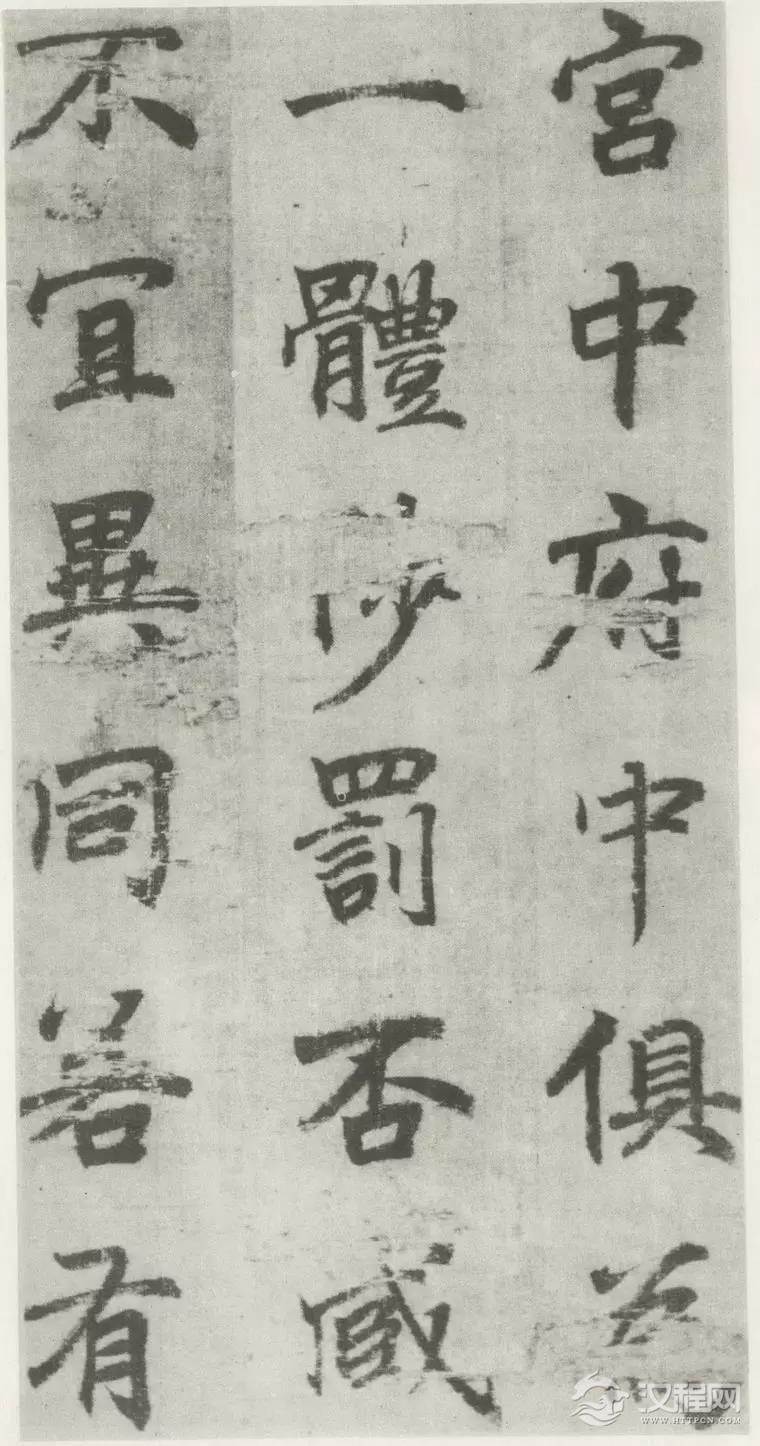 宫中府中俱為
一體陟罰否臧
不冝異同若有
汉程网
WWW.HTTPCN.COM